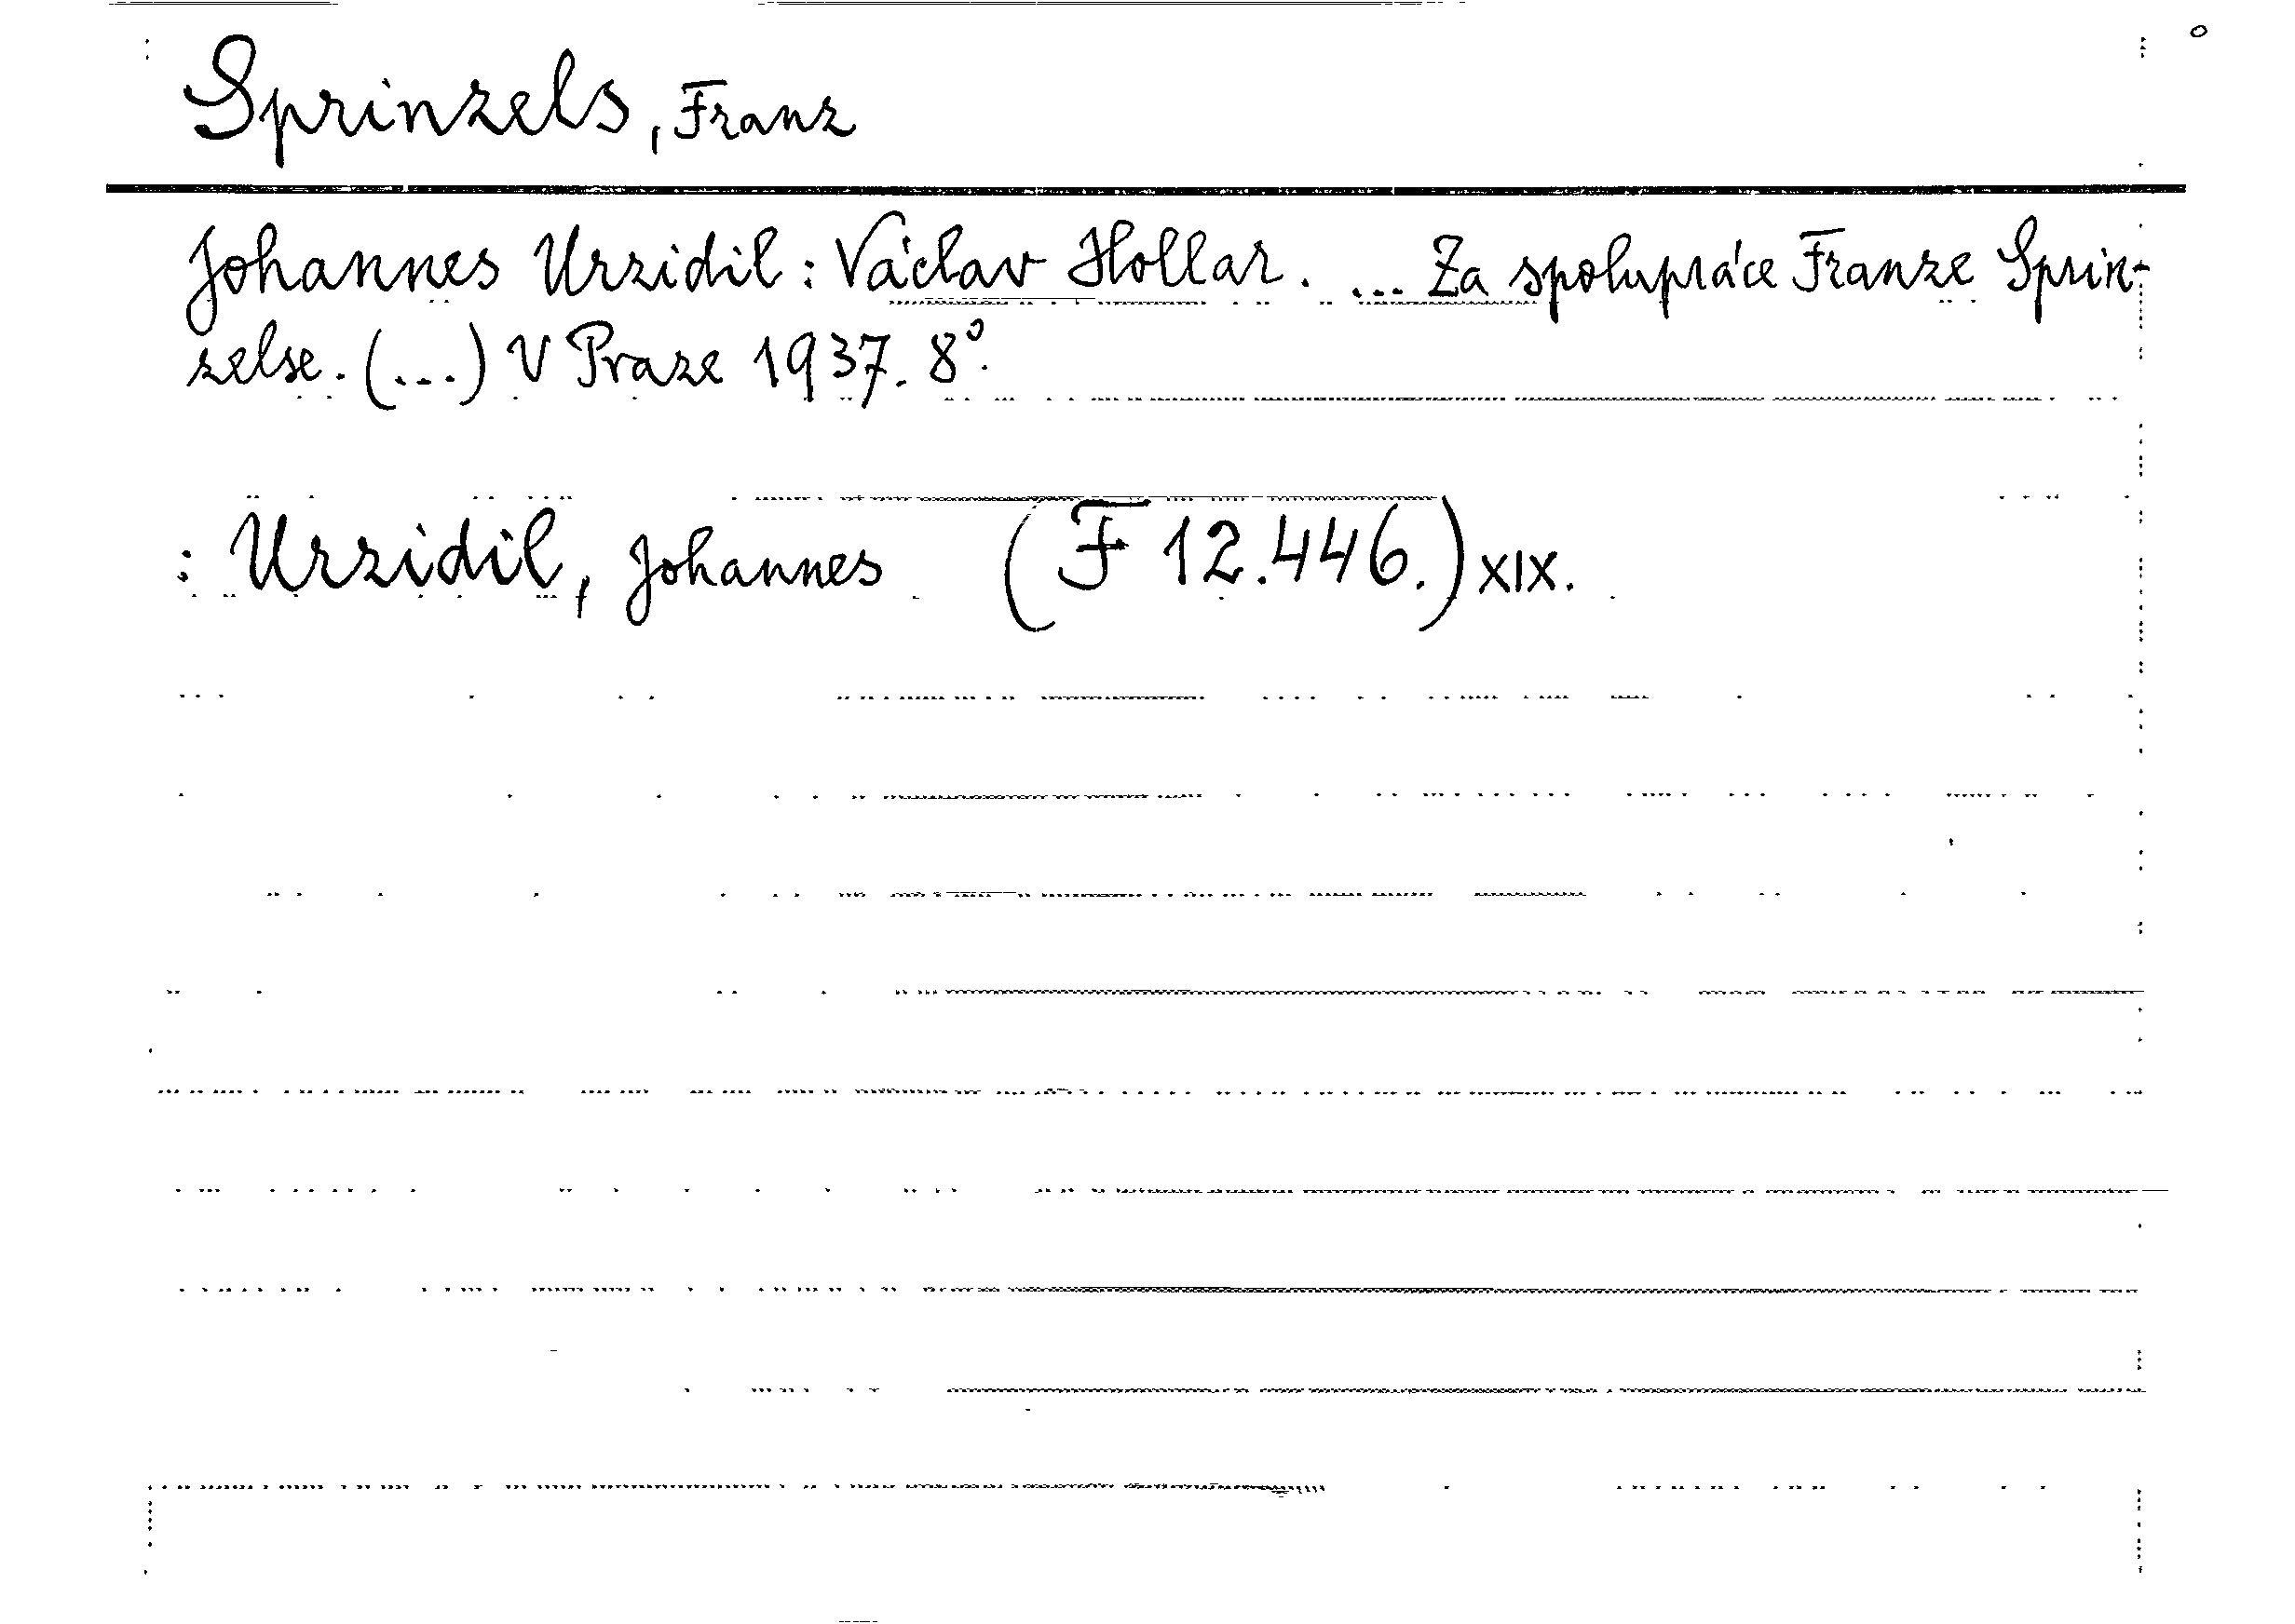 Sprinzels, Franz
Johannes Urzidil: Václav Hollar. ... Za spolupráce Franze Sprin-
zelse. (...) V Praze 1937. 8°.
: Urzidil, Johannes (F 12.446.) XIX.